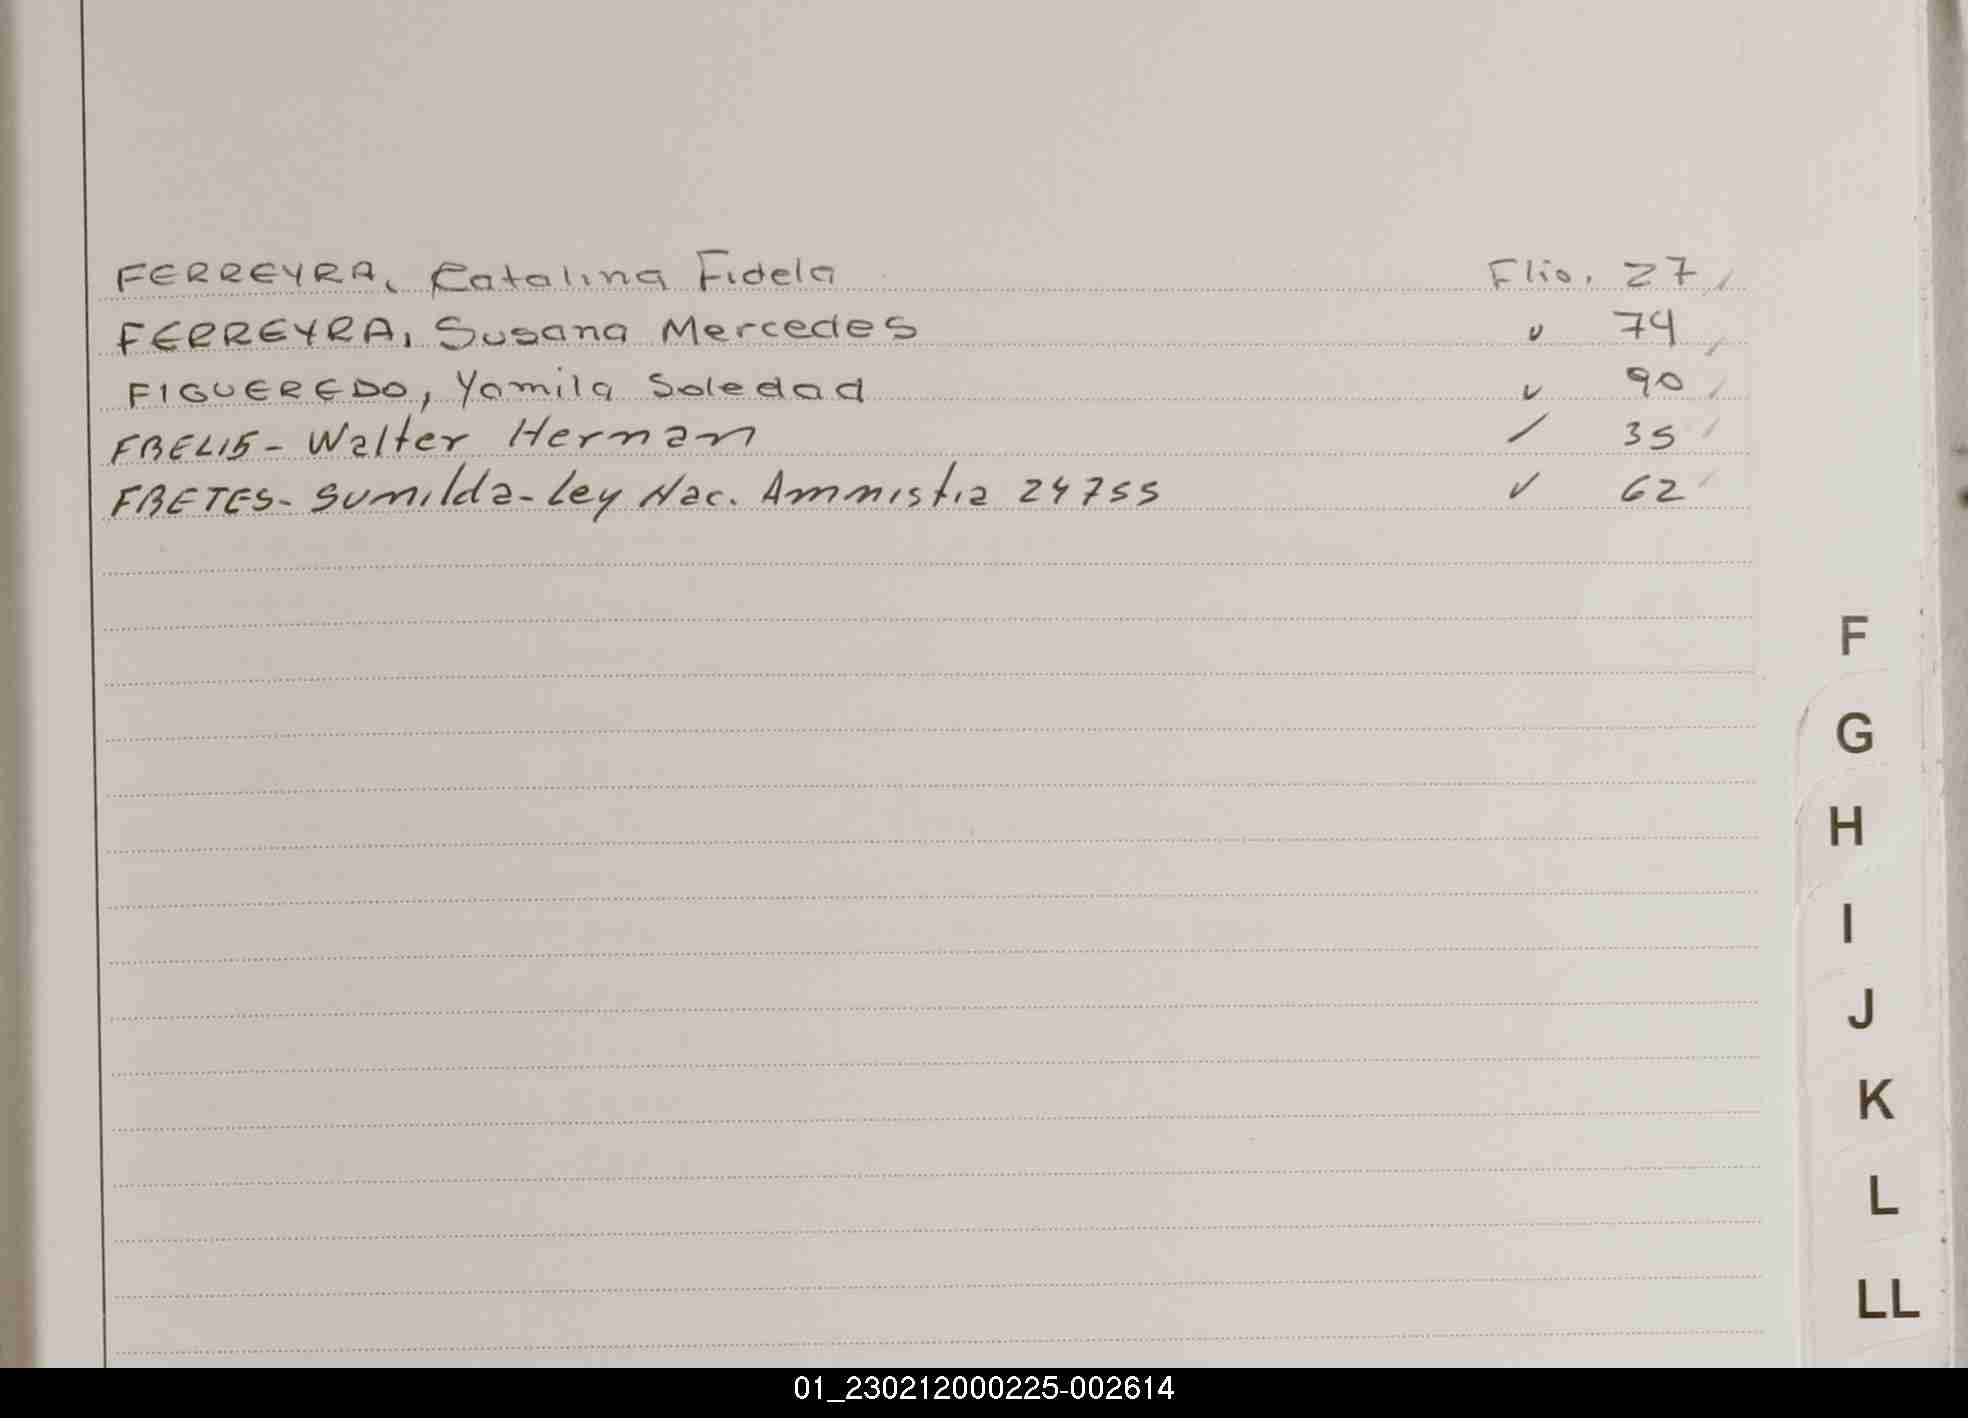 FERREYRA, Catalina Fidela Flio. 27
FERREYRA, Susana Mercedes " 74
FIGUEREDO, Yamila Soledad " 90
FRELIS - Walter Hernan / 35
FRETES - Sumilda - Ley Nac. Amnistia 24755 " 62
F
G
H
I
J
K
L
LL
01_230212000225-002614